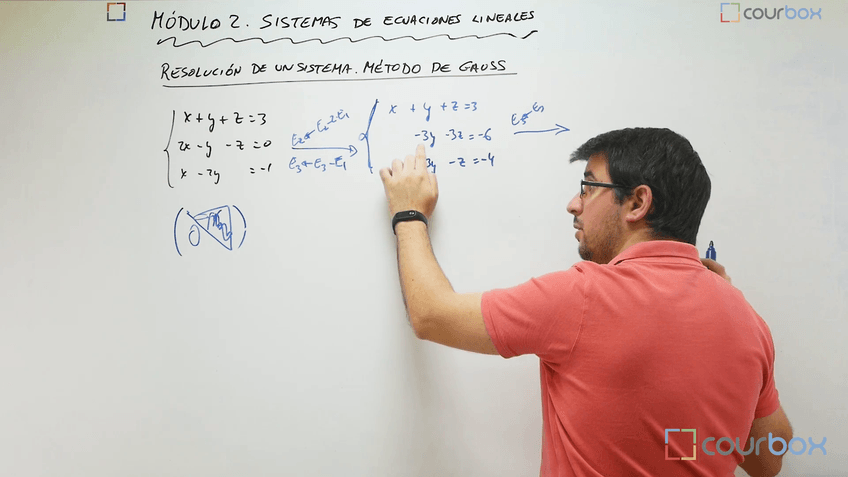 MÓDULO 2. SISTEMAS DE ECUACIONES LINEALES
courbox
RESOLUCIÓN DE UN SISTEMA. MÉTODO DE GAUSS
x + y + z = 3
2x - y - z = 0
x - 2y = -1
E2 ← E2 - 2E1
E3 ← E3 - E1
x + y + z = 3
-3y - 3z = -6
3y - z = -4
0
courbox